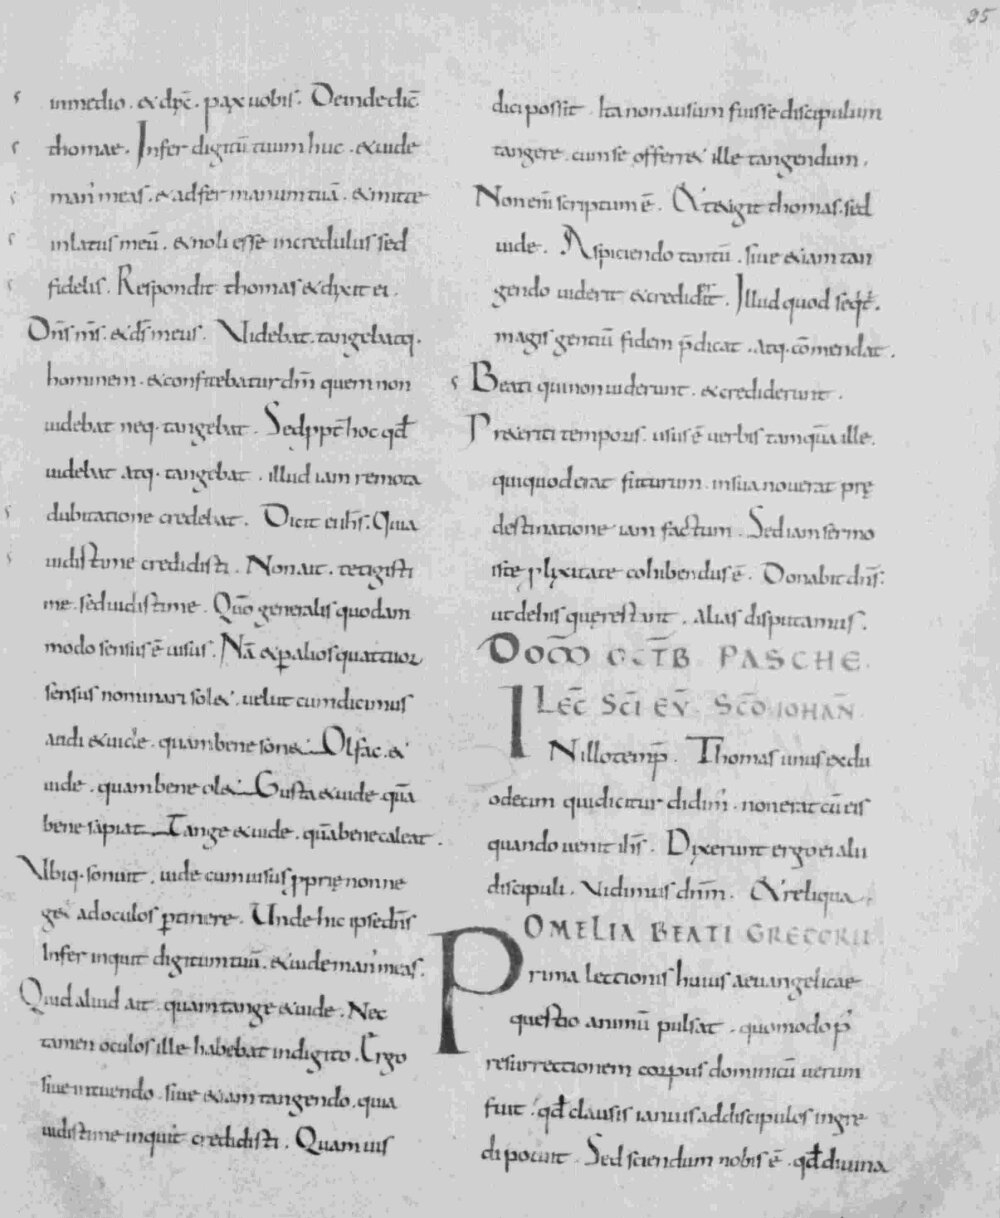 95
in medio . & dix̄ . pax uobis . Deinde dic̄
thomae . Infer digitū tuum huc . & uide
man' meas . & adfer manum tuā . & mitte
in latus meū . & noli esse incredulus sed
fidelis . Respondit thomas & dixit ei .
Dn̄s m̄s . & ds̄ meus . Videbat . tangebatq .
hominem . & confitebatur dm̄ quem non
uidebat neq . tangebat . Sed ppt̄ hoc qđ
uidebat atq . tangebat . illud iam remota
dubitatione credebat . Dicit ei ihs̄ . Quia
uidisti me credidisti . Non ait . tetigisti
me . sed uidisti me . Qm̄o generalis quodam
modo sensus ē uisus . Nā & p alios quattuor
sensus nominari sol& . uelut cum dicimus
audi & uide . quam bene son& . Olfac . &
uide . quam bene ol& . Gusta & uide . quā
bene sapiat . Tange & uide . quā bene caleat .
Vbiq . sonuit . uide cum uisus pprię non ne
g& ad oculos ptinere . Unde hic ipse dn̄s
Infer inquit digitum tuū . & uide man' meas .
Quid aliud ait . quam tange & uide . Nec
tamen oculos ille habebat in digito . Ergo
siue intuendo . siue &iam tangendo . quia
uidisti me inquit credidisti . Quamuis
dici possit . Ita non ausum fuisse discipulum
tangere . cum se offerr& ille tangendum .
Non em̄ scriptum ē . & tetigit thomas . sed
uide . Aspiciendo tantū . siue &iam tan
gendo uiderit & crediderit . Illud quod seqt̄ .
magis gentiū fidem p̄dicat . atq . cōmendat .
Beati qui non uiderunt . & crediderunt .
Pr&eriti temporis . usus ē uerbis tamquā ille .
qui quod erat futurum . in sua nouerat prę
destinatione iam factum . Sed iam sermo
iste plixitate cohibendus ē . Donabit dn̄s :
ut de his quę restant . alias disputamus .
DOM̄ OCTB̄ PASCHE .
LEC̄ SC̄I EV̄ . SCD̄O IOHAN̄
IN illo temp̄ . Thomas unus ex du
odecim qui dicitur didim' . non erat cū eis
quando uenit ihs̄ . Dixerunt ergo ei alii
discipuli . Vidimus dnm̄ . & reliqua .
OMELIA BEATI GREGORII .
Prima lectionis huius aeuangelicae
questio animū pulsat . quomodo p'
resurrectionem corpus dominicū uerum
fuit . qđ clausis ianuis ad discipulos ingre
di potuit . Sed sciendum nobis ē . qđ diuina